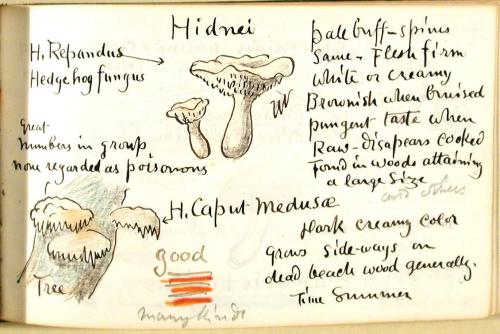 Hidnei
H. Repandus
Hedgehog fungus
pale buff-spines
Same - Flesh firm
white or creamy
Brownish when bruised
pungent taste when
Raw - disapears cooked
Found in woods attaining
a large Size
and others
Great
numbers in group
none regarded as poisonous
H. Caput-Medusæ
Tree
good
many kinds
Dark creamy color
Grows side-ways on
dead beach wood generally.
Time Summer